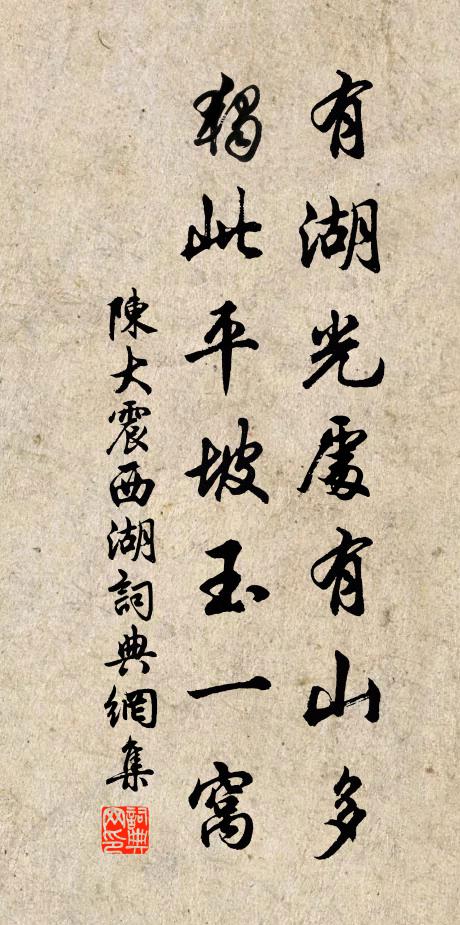 有湖光處有山多
獨此平坡玉一窩
陳大震西湖詞典網集
詞典网印